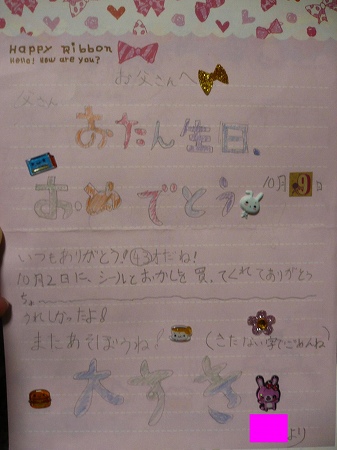 HAPPY RIBBON
Hello! How are you?
お父さんへ
父さん
おたん生日、
おめでとう
10月 日
いつもありがとう!43才だね!
10月2日に、シールとおかしを買ってくれてありがとう
ちょ〜
うれしかったよ!
またあそぼうね!
(きたない字でごめんね)
大すき
より